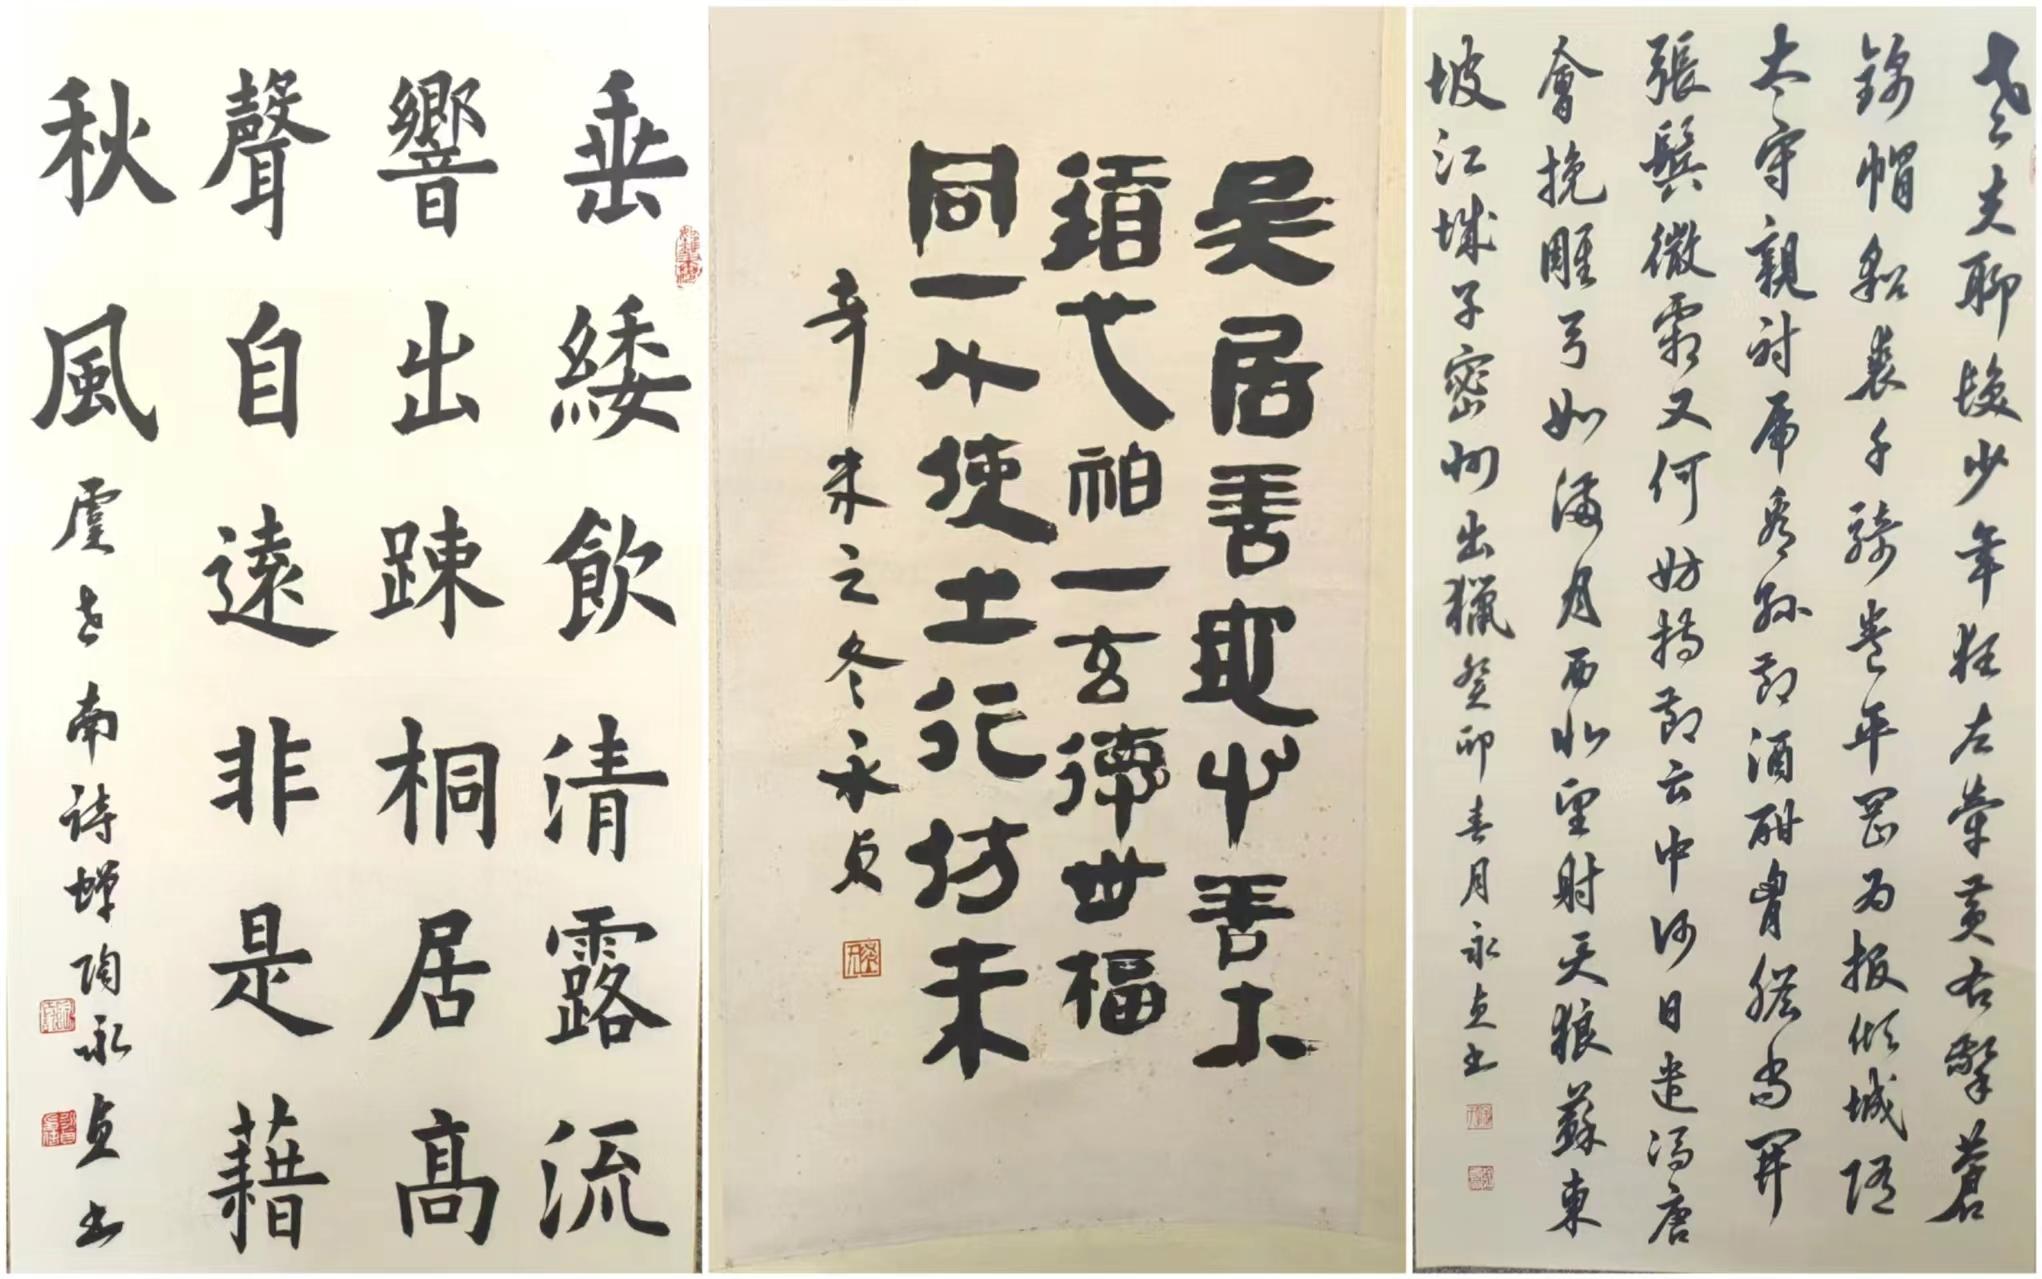 垂緌飲清露流
響出踈桐居高
聲自遠非是藉
秋風
虞世南詩蟬陶永貞書
居善心善
一玄德世福
同一使士化坊未
辛未之冬永贞
老夫聊發少年狂左牽黃右擎蒼
錦帽貂裘千騎卷平岡为报倾城随
太守親射虎看孫郎酒酣胷膽尚開
張鬢微霜又何妨持節云中何日遣馮唐
會挽雕弓如滿月西北望射天狼蘇東
坡江城子密州出獵癸卯春月永貞书